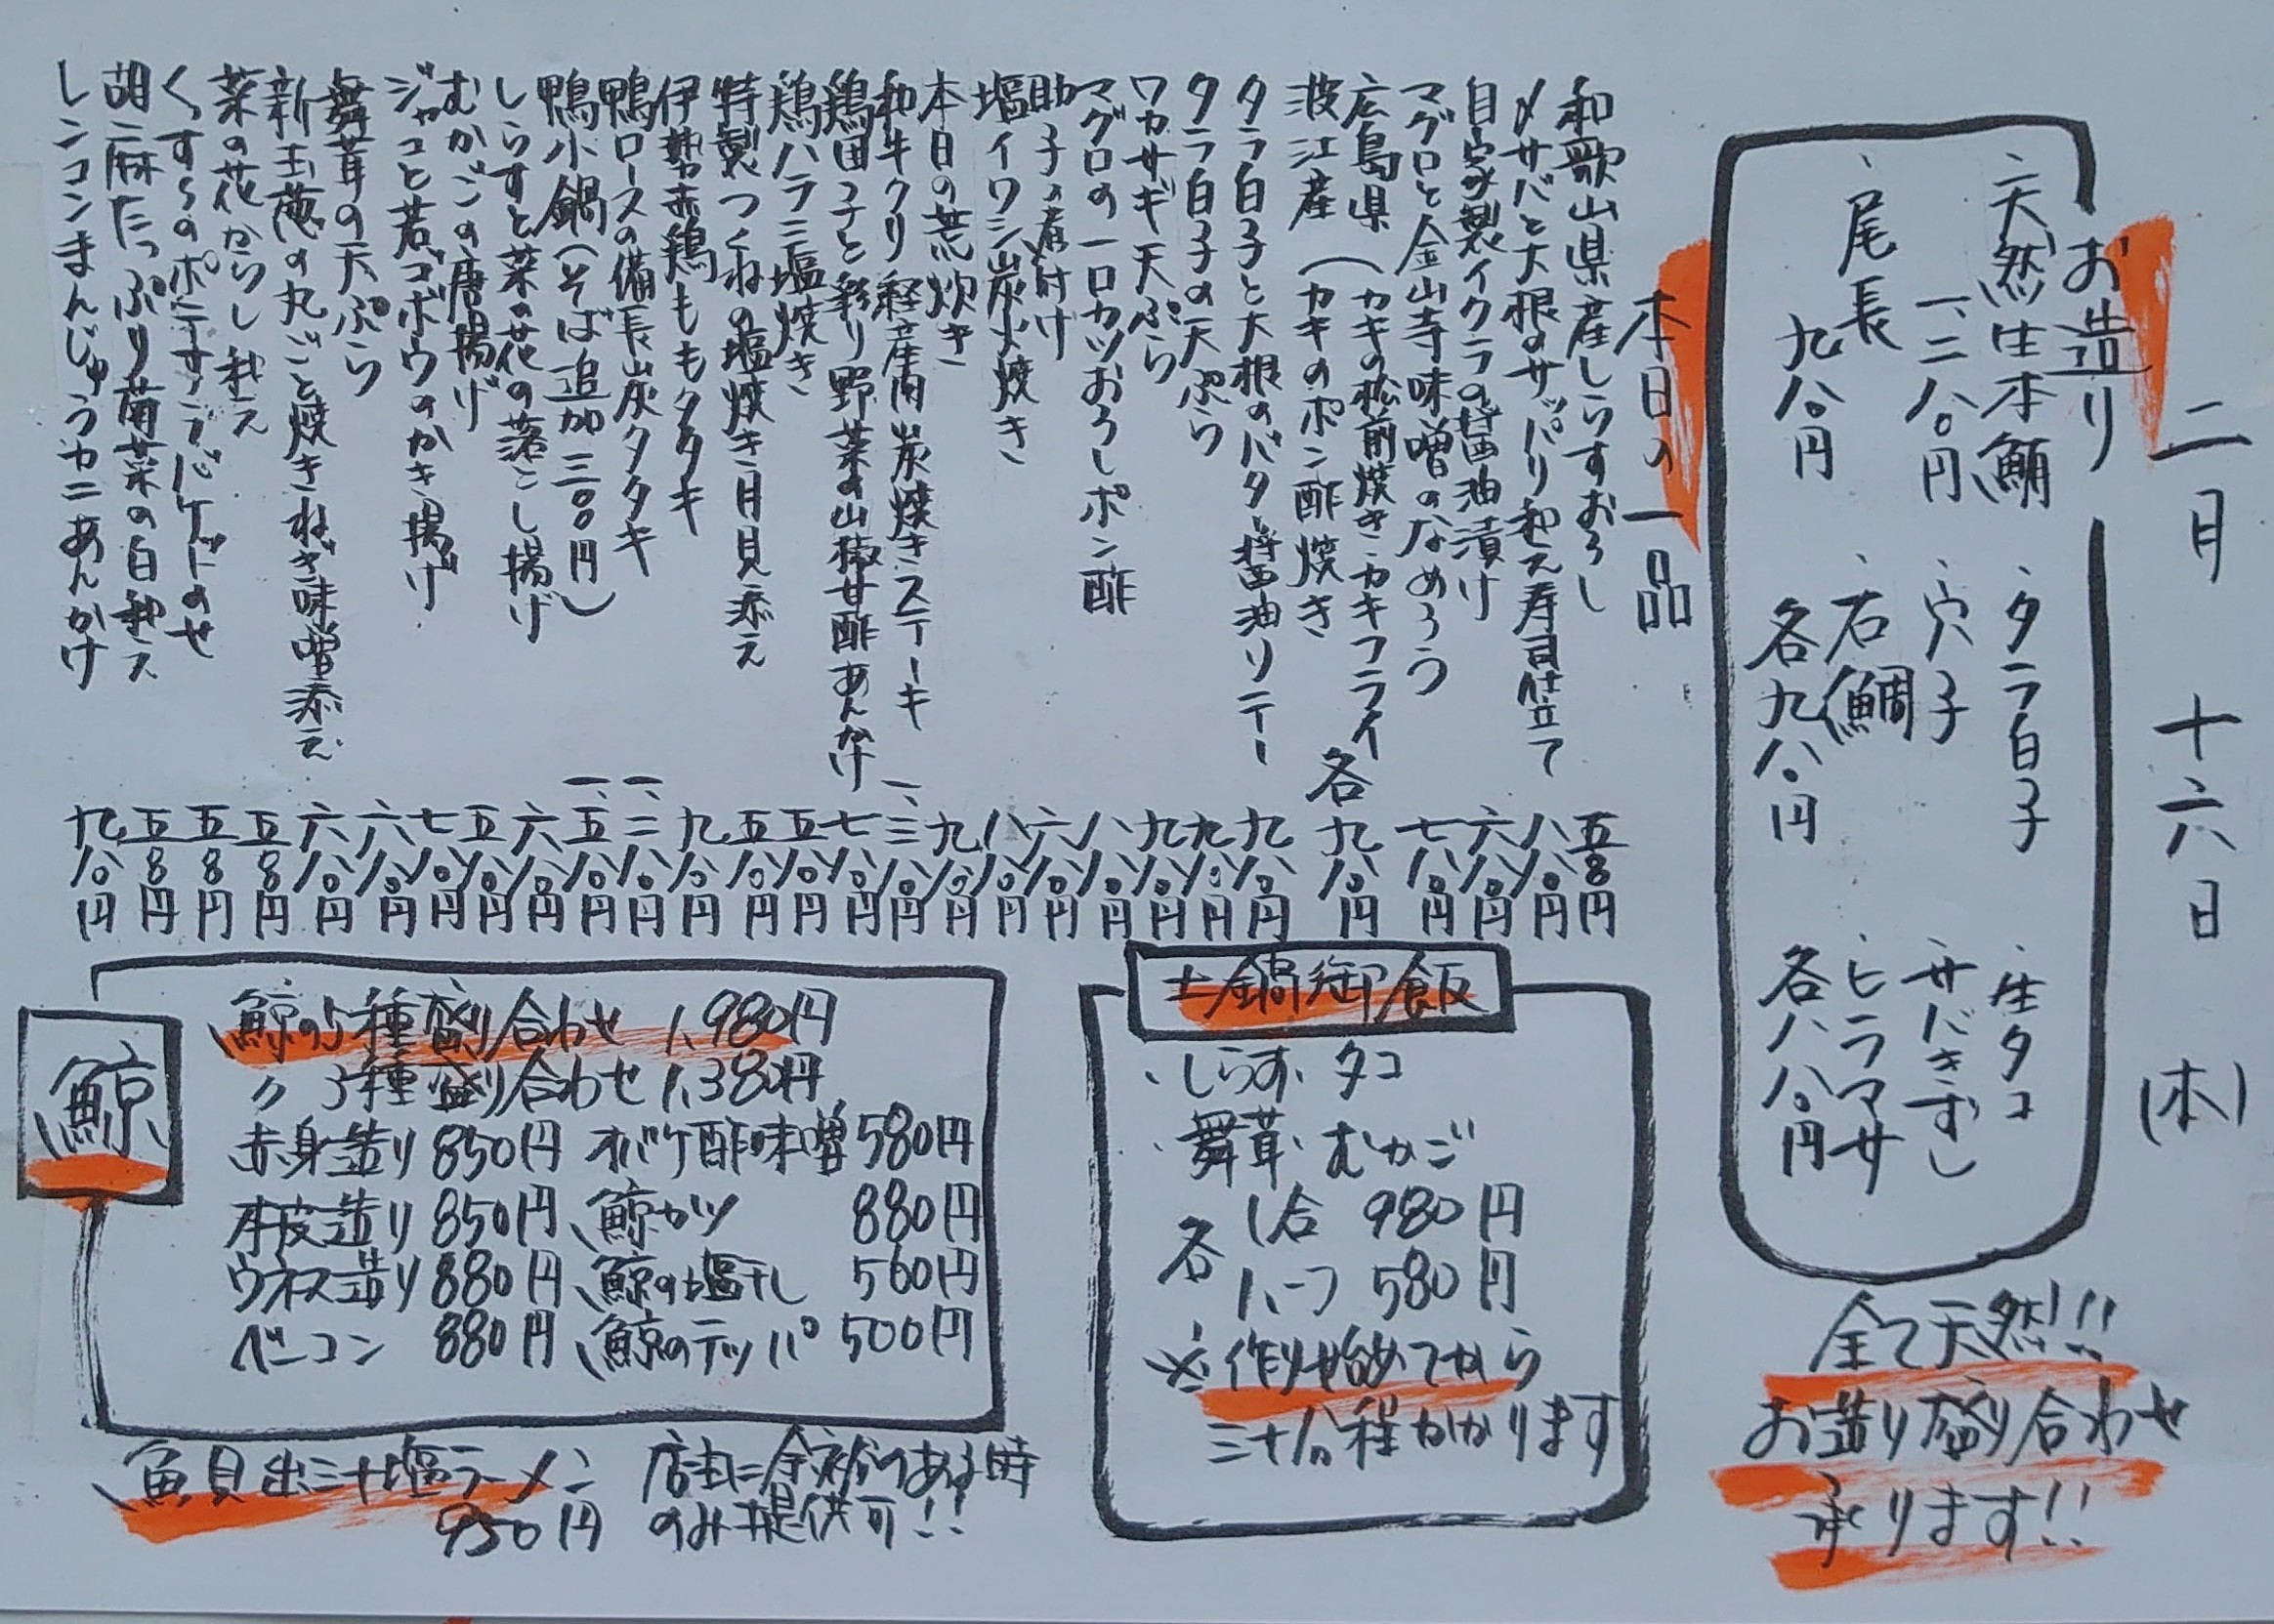 二月 十六日 (木)
お造り
・天然生本鮪
一、二八〇円
・尾長
九八〇円
・タラ白子
・穴子
・石鯛
各九八〇円
・生タコ
・サバきずし
・ヒラマサ
各八八〇円
全て天然!!
お造り盛り合わせ
承ります!!
本日の一品
和歌山県産しらすおろし 五八〇円
〆サバと大根のサッパリ和え寿司仕立て 八八〇円
自家製イクラの醤油漬け 六八〇円
マグロと金山寺味噌のなめろう 七八〇円
広島県 (カキの松前焼き・カキフライ
波江産 (カキのポン酢焼き 各 九八〇円
タラ白子と大根のバター醤油ソテー 九八〇円
タラ白子の天ぷら 九八〇円
ワカサギ天ぷら 九八〇円
マグロの一口カツおろしポン酢 八八〇円
助子の煮付け 六八〇円
塩イワシ炭火焼き 八八〇円
本日の荒炊き 九八〇円
和牛クリ 経産肉炭焼きステーキ 一、三八〇円
鶏団子と彩り野菜の山椒甘酢あんかけ 七八〇円
鶏ハラミ塩焼き 五八〇円
特製つくねの塩焼き月見添え 五八〇円
伊勢赤鶏ももタタキ 九八〇円
鴨ロースの備長炭タタキ 一、二八〇円
鴨小鍋(そば追加三〇〇円) 一、五八〇円
しらすと菜の花の落とし揚げ 六八〇円
むかごの唐揚げ 五八〇円
ジャコと若ゴボウのかき揚げ 七八〇円
舞茸の天ぷら 六八〇円
新玉葱の丸ごと焼きねぎ味噌添え 六八〇円
菜の花からし和え 五八〇円
くすらのポテサラバケットのせ 五八〇円
胡麻たっぷり菊菜の白和え 五八〇円
レンコンまんじゅうカニあんかけ 九八〇円
土鍋御飯
・しらす・タコ
・舞茸・むかご
各 1合 980円
ハーフ 580円
※作り始めてから
三十分程かかります
鯨
鯨の5種盛り合わせ 1,980円
〃 3種盛り合わせ 1,380円
赤身造り 850円 オバケ酢味噌 580円
本皮造り 850円 鯨カツ 880円
ウネス造り 880円 鯨の塩干し 560円
ベーコン 880円 鯨のテッパ 500円
魚貝出汁塩ラーメン 店主に余裕のある時
950円 のみ提供可!!